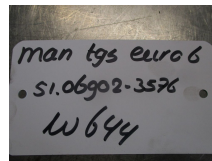 man tgs euro 6
51.06902-3576
W644